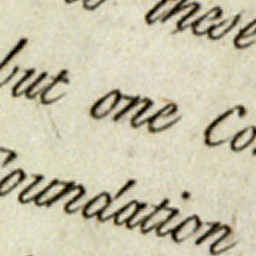 these
but one Co
Foundation